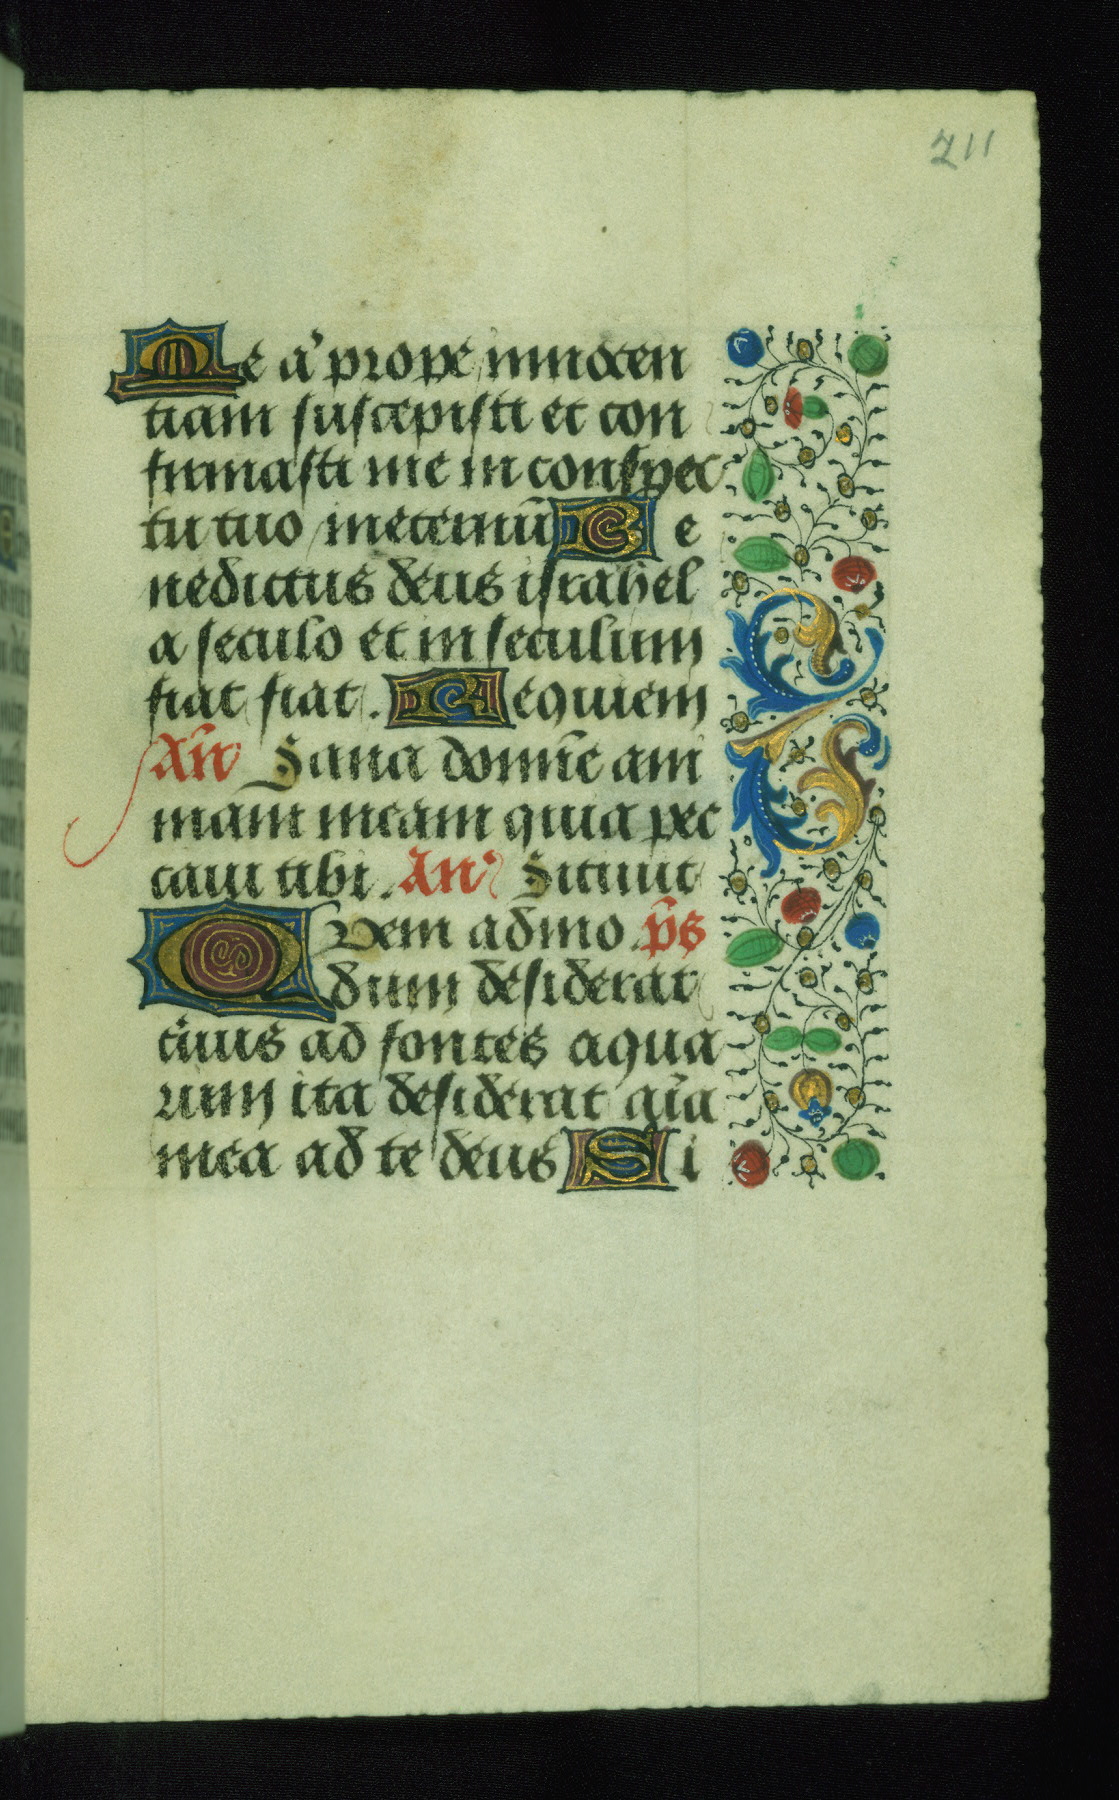 211
Me a' prope innocen
tiam suscepisti et con
firmasti me in conspec
tu tuo in eternū Be
nedictus deus israhel
a seculo et in seculum
fiat fiat. Requiem
An̄ Sana domīe ani
mam meam quia pec
caui tibi. An' Sitiuit
Quem admo p̄s
dum desiderat
c̓uus ad fontes aqua
rum ita desiderat aīa
mea ad te deus Si